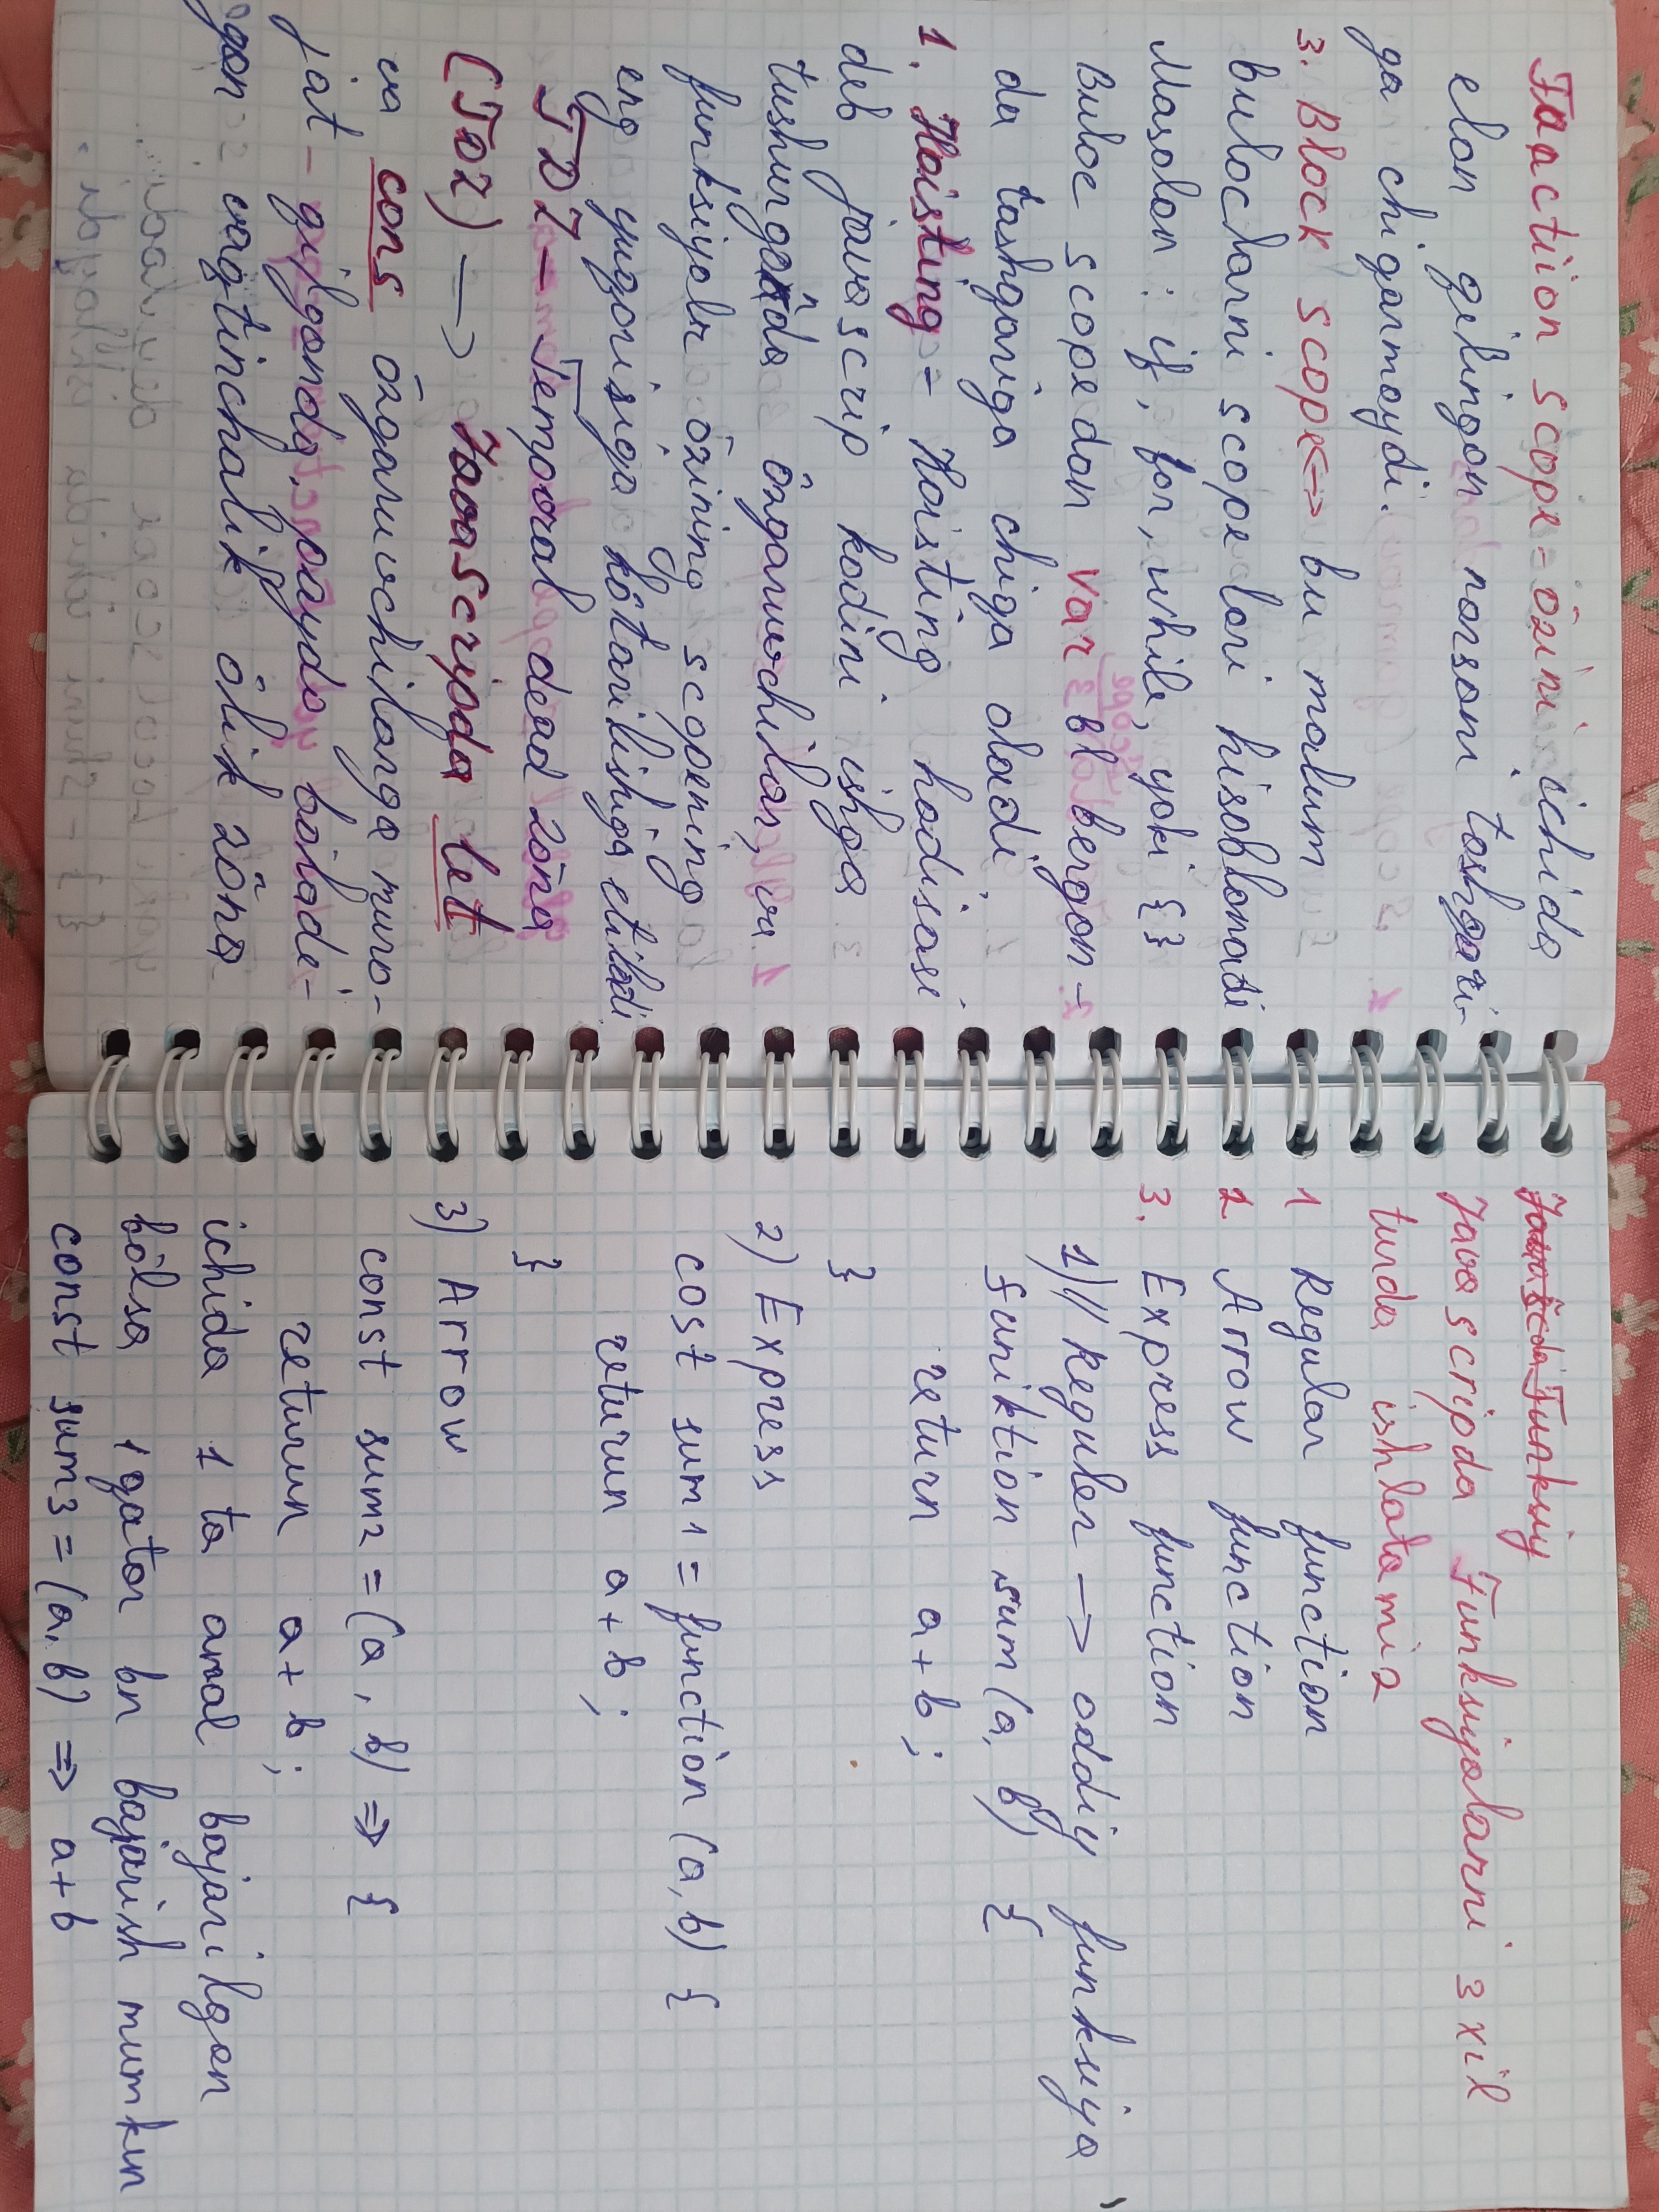 Faaction scope = ôzini ichida
elon qilingan narsani tashqari-
ga chiqarmaydi.
3. Block scope <=> bu malum
bulocharni scope lari hisoblanadi
Masalan : if, for, while, yoki { }
Buloc scope dan var bl bergan-
da tashqariga chiqa oladi
1. Hoisting = Hoisting hodisasi
deb javascrip kodini ishga
tushurgônda ôzgaruvchilar, va
funksiyalr ôzining scopening
eng yuqorisiga kôtarilishiga etiladi
TDZ - Temporal dead zona
(Toz) —> Javascripda let
va cons ôzgaruvchilarga muro-
jat - qilganda, paydo bôlade-
gan vaqtinchalik ôlik zôna
Javascripda Funksiyalarni 3 xil
turda ishlatamiz
1 Regular function
2 Arrow function
3. Express function
1) // Reguler —> oddiy funksiya
funiktion sum (a, b) {
return a + b ;
}
2) Express
cost sum 1 = function (a, b) {
return a + b ;
}
3) Arrow
const sum2 = (a, b) => {
return a + b ;
ichida 1 ta amal bajarilgan
bôlsa 1 qator bn bajarish mumkin
const sum3 = (a, b) => a + b